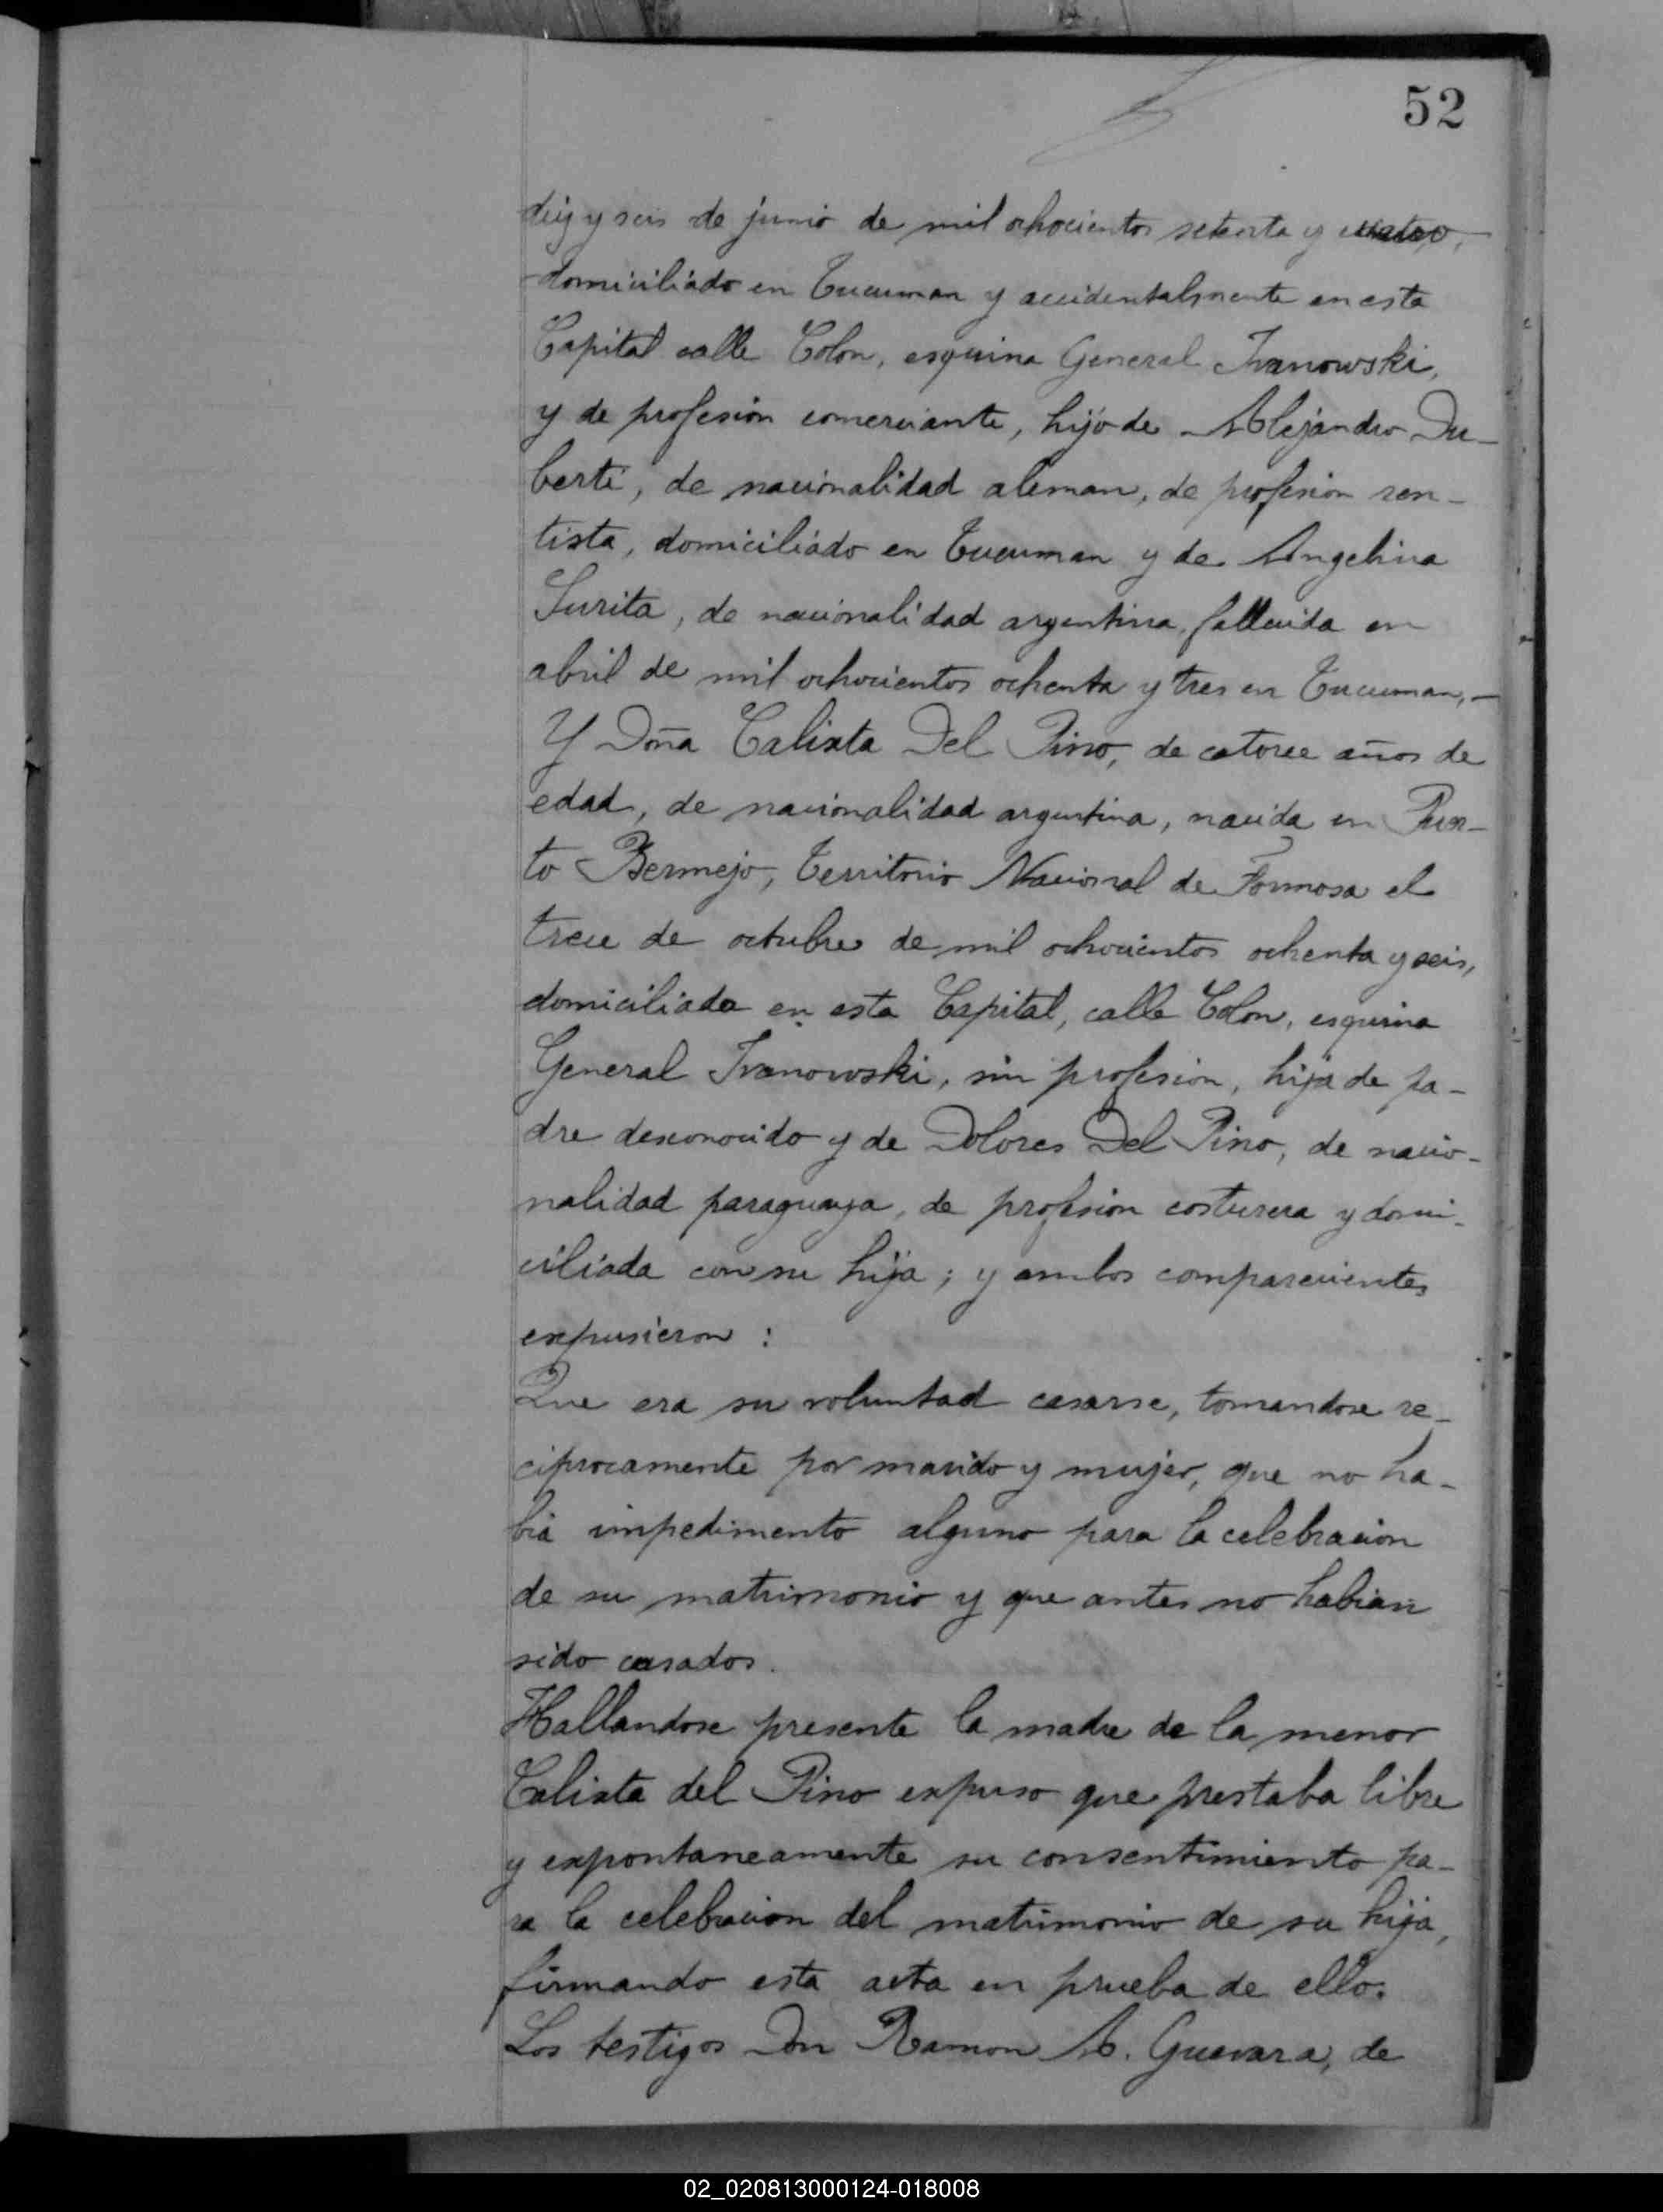 52
diez y seis de junio de mil ochocientos setenta y cuatro,
domiciliado en Tucuman y accidentalmente en esta
Capital calle Colon, esquina General Ivanowski,
y de profesion comerciante, hijo de Alejandro Du-
berti, de nacionalidad aleman, de profesion ren-
tista, domiciliado en Tucuman y de Angelina
Surita, de nacionalidad argentina, fallecida en
abril de mil ochocientos ochenta y tres en Tucuman,-
Y Doña Calixta Del Pino, de catorce años de
edad, de nacionalidad argentina, nacida en Puer-
to Bermejo, Territorio Nacional de Formosa el
trece de octubre de mil ochocientos ochenta y seis,
domiciliada en esta Capital, calle Colon, esquina
General Ivanowski, sin profesion, hija de pa-
dre desconocido y de Dolores Del Pino, de nacio-
nalidad paraguaya, de profesion costurera y domi-
ciliada con su hija; y ambos comparecientes
expusieron:
Que era su voluntad casarse, tomandose re-
ciprocamente por marido y mujer, que no ha-
bia impedimento alguno para la celebracion
de su matrimonio y que antes no habian
sido casados.
Hallandose presente la madre de la menor
Calixta del Pino expuso que prestaba libre
y expontaneamente su consentimiento pa-
ra la celebracion del matrimonio de su hija,
firmando esta acta en prueba de ello.
Los testigos Don Ramon A. Guevara, de
02_020813000124-018008